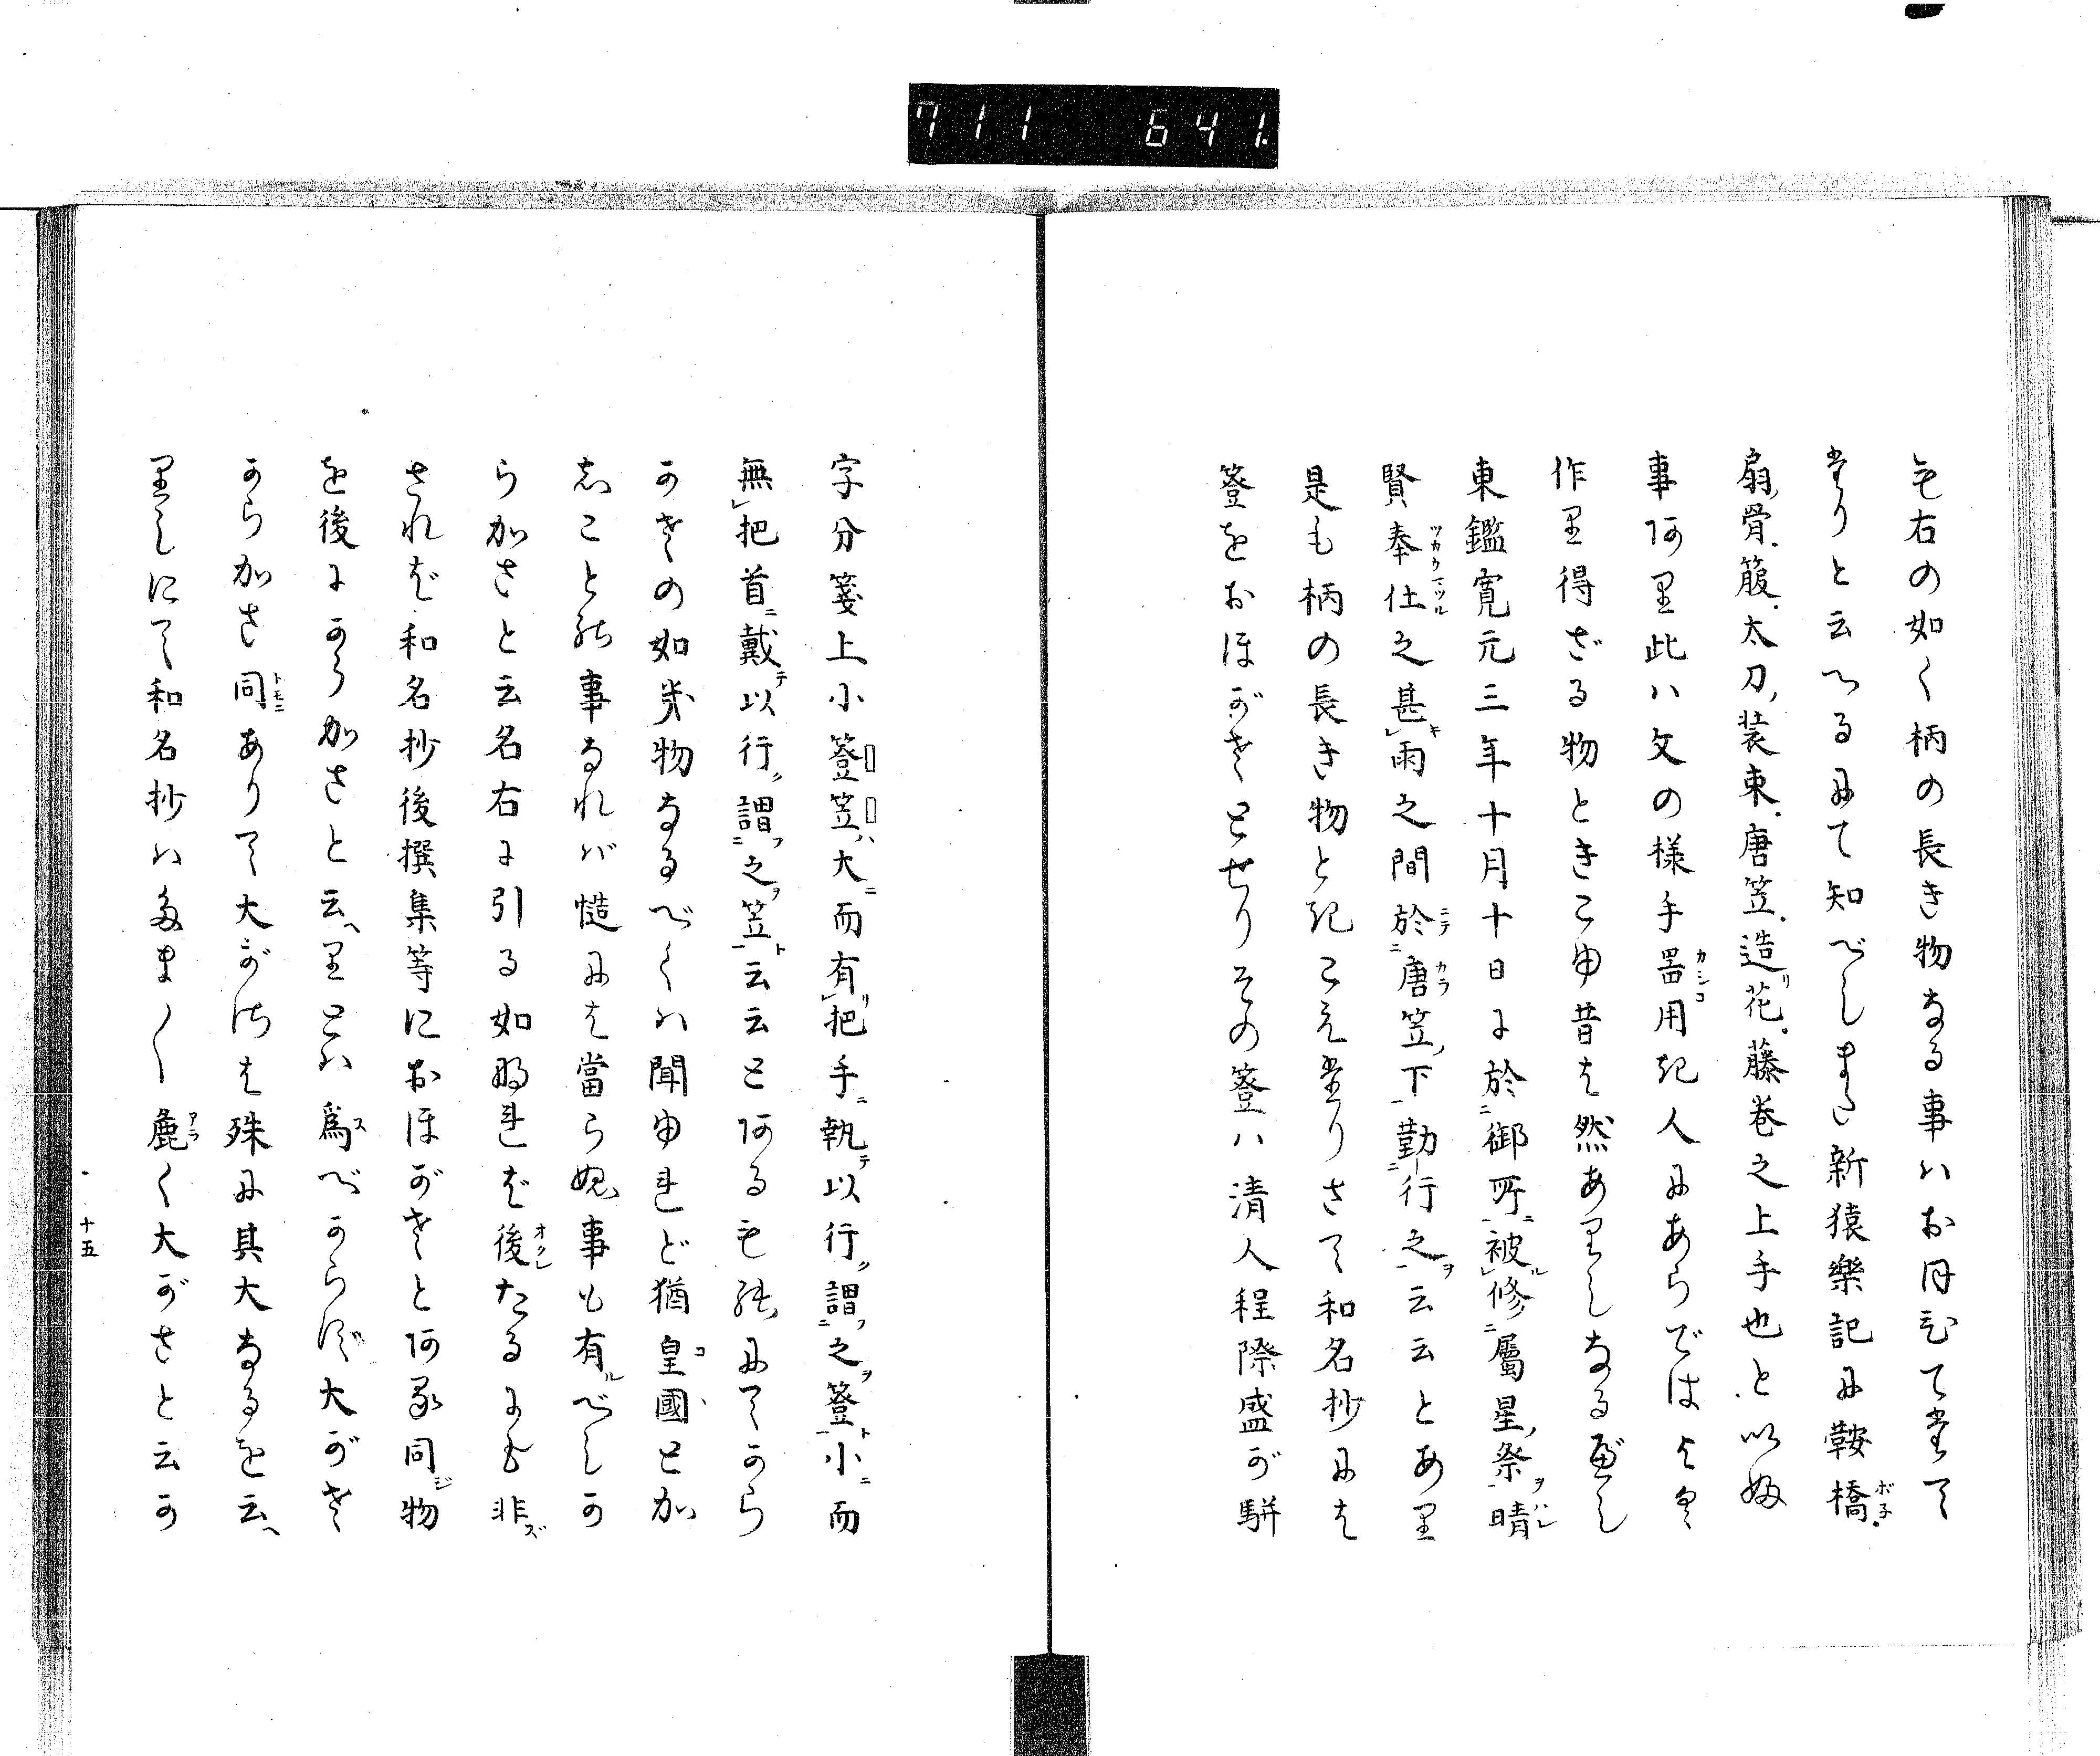 711 641
も右の如く柄の長き物なる事はおほむて知て
なりと云へるにて知べしまた新猿樂記に鞍橋
扇骨箙太刀装束唐笠造花藤巻之上手也と以ふ
事阿里此ハ文の様手畧用き人にあらでは
作里得ざる物ときこゆ昔は然ありしなるべし
東鑑寛元三年十月十日に於御所被修屬星祭晴
賢奉仕之甚雨之間於唐笠下勤行之云云とあ里
是も柄の長き物と記こえたりさて和名抄には
簦をおほがさとせりその簦ハ清人程際盛が駢
字分箋上小簦笠大而有把手執以行謂之簦小而
無把首戴以行謂之笠云云と阿るも能にてから
かさの如き物なるべくハ聞ゆれど猶皇國とか
志こと能事なれバ慥には當らぬ事も有べしか
らかさと云名右に引る如なれば後たるにも非ず
されば和名抄後撰集等におほがさと阿る同物
を後にからかさと云へ里とハ爲べからず大がさ
からかさ同ありて大がさは殊に其大なるを云へ
里しにて和名抄ハたま〳〵麁く大がさと云か
十五